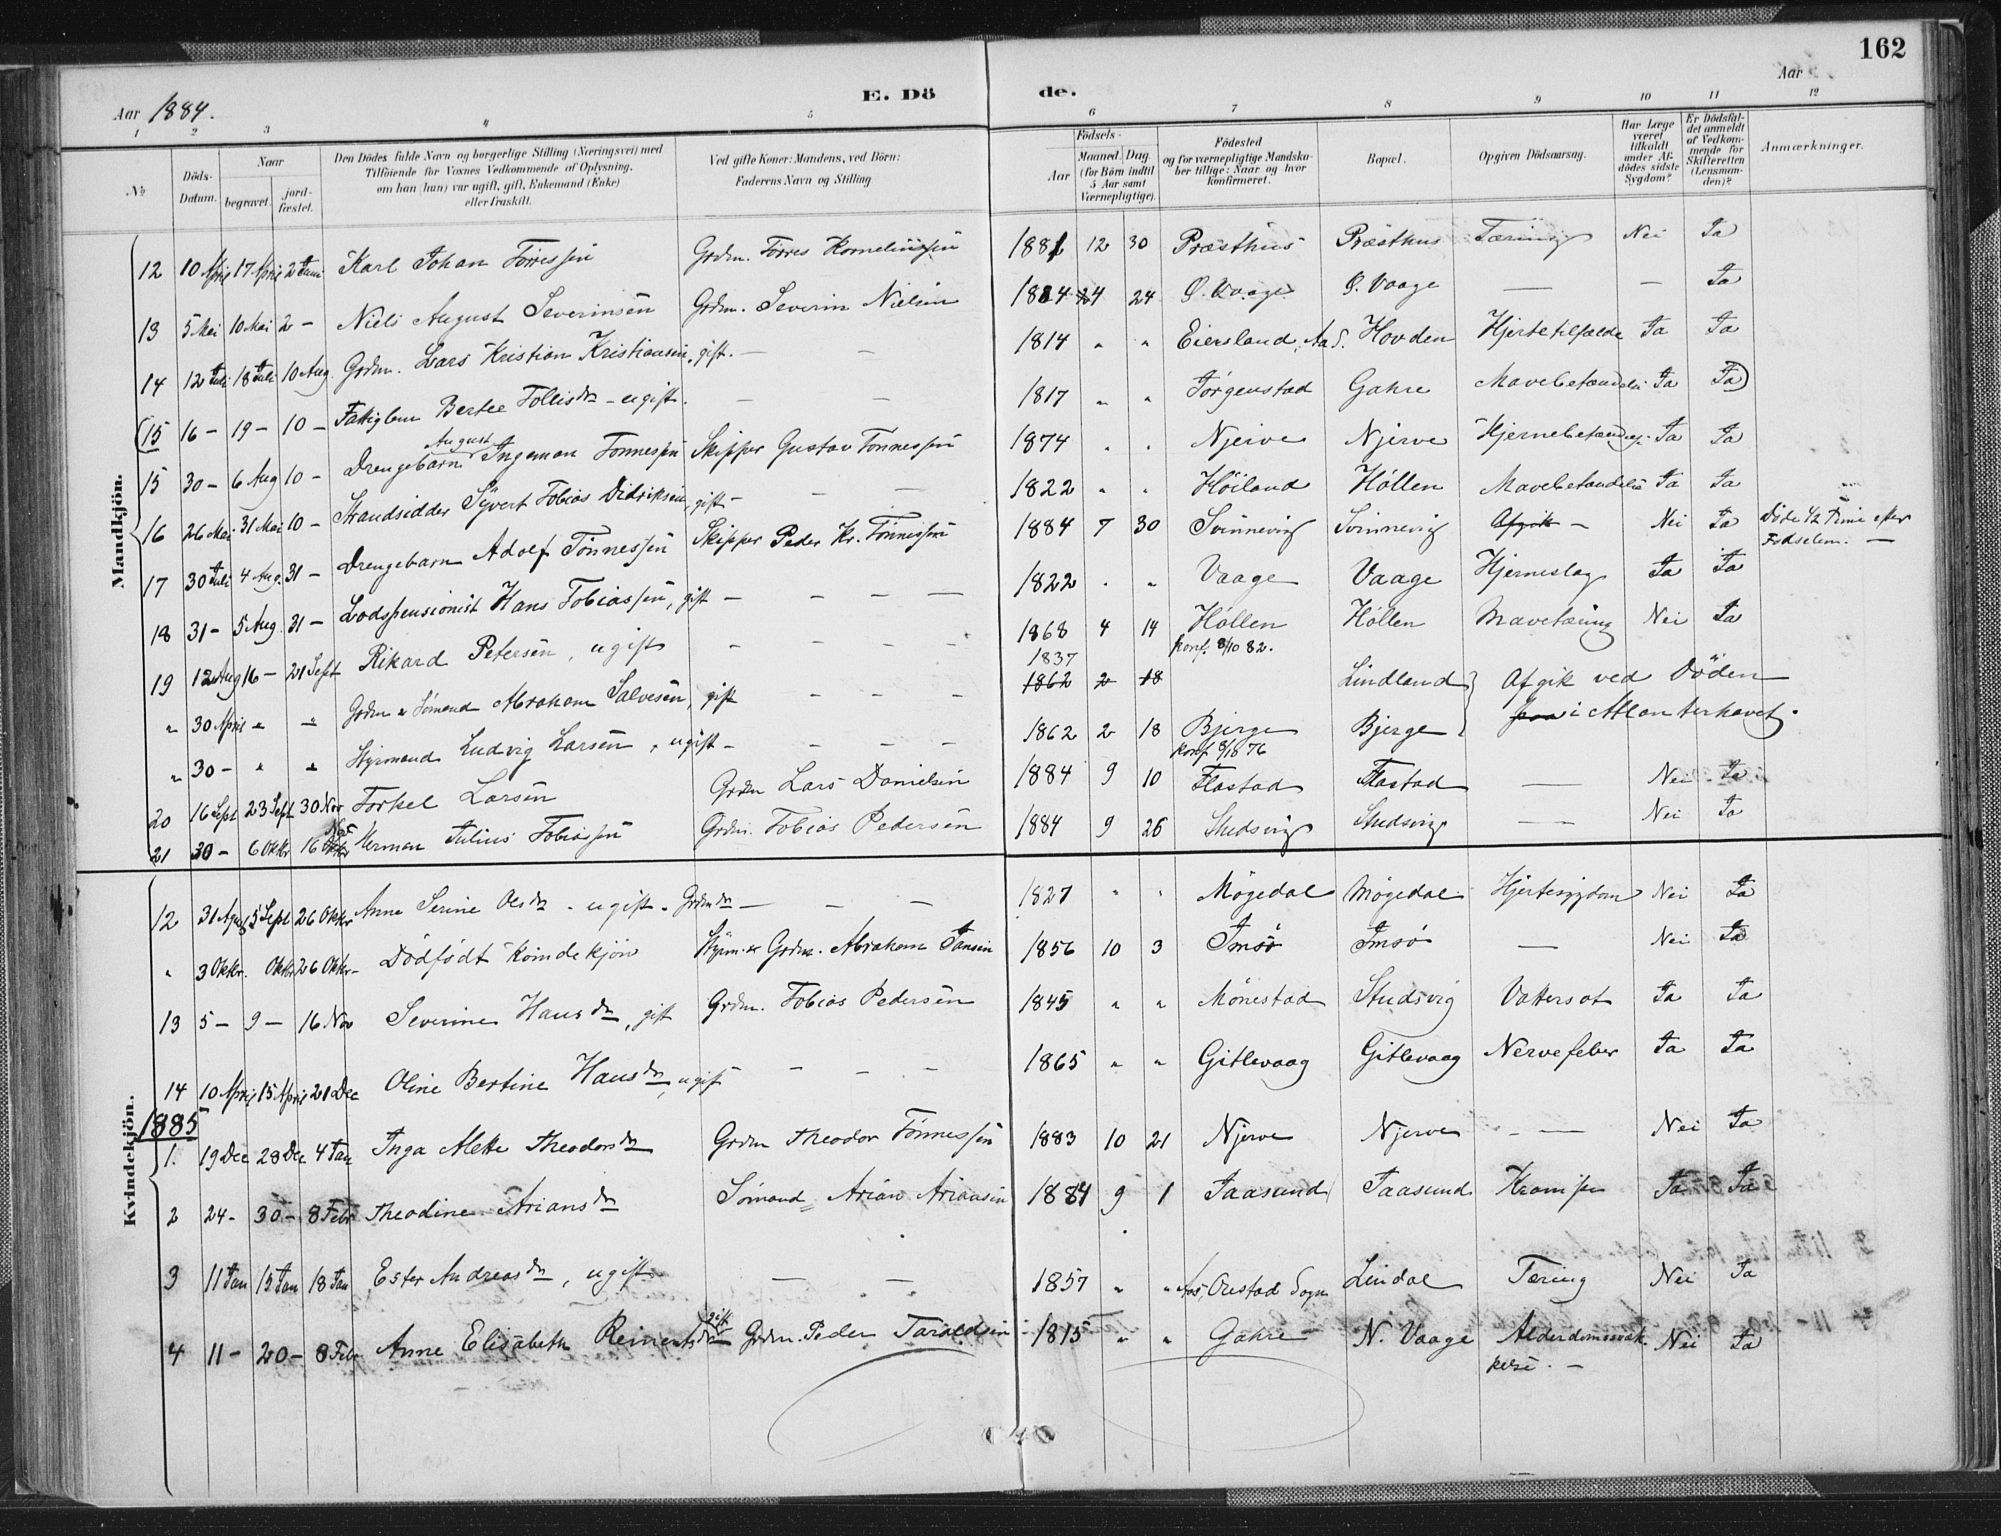 162
Aar 1884. E. Dö de. Aar
1 2 3 4 5 6 7 8 9 10 11 12
No Döds-Datum. Naar begravet. jord-fæstet. Den Dödes fulde Navn og borgerlige Stilling (Næringsvei) med Tilföiende for Voxnes Vedkommende af Oplysning, om han (hun) var ugift, gift, Enkemand (Enke) eller fraskilt. Ved gifte Koner: Mandens, ved Börn: Faderens Navn og Stilling Födsels- Aar Maaned. Dag. (for Börn indtil 5 Aar samt Værnepligtige). Födested og for værnepligtige Mandskaber tillige: Naar og hvor konfirmeret. Bopæl. Opgiven Dödsaarsag. Har Læge været tilkaldt under Afdödes sidste Sygdom? Er Dödsfaldet anmeldt af Vedkommende for Skifteretten (Lensmanden)? Anmærkninger.
Mandkjön.
12 10 April 17 April 2 Juni Karl Johan Törressen Grdm. Törres Korneliussen 1881 12 30 Præsthus Præsthus Tæring Nei Ja
13 5 Mai 10 Mai 2 – Niels August Severinsen Grdm. Severin Nielsen 1884 4 24 Ö. Vaage Ö. Vaage — — Ja
14 12 Juli 18 Juli 10 Aug. Grdm. Lars Kristian Kristiansen, gift. — — 1814 " " Eiersland, Aa S. Hovden Hjertetilfælde Ja Ja
(15 16 – 19 – 10 – Fattiglem Berte Follisdr – ugift. — — 1817 " " Jörgenstad Gahre Mavebetændelse Ja Ja)
15 30 – 6 Aug 10 – Drengebarn August Ingeman Tönnessen Skipper Gustav Tönnessen 1874 " " Njerve Njerve Hjernebetændelse Ja Ja
16 26 Mai 31 Mai 10 – Strandsidder Syvert Tobias Didriksen, gift – — — 1822 " " Höiland Höllen Mavebetændelse Ja Ja
17 30 Juli 4 Aug. 31 – Drengebarn Adolf Tönnessen Skipper Peder Kr. Tönnessen 1884 7 30 Svinnevig Svinnevig Afgik – Nei Ja Döde 1/2 Time efter Födselen. —
18 31 – 5 Aug. 31 – Lodspensionist Hans Tobiassen, gift — — — — 1822 " " Vaage Vaage Hjerneslag Ja Ja
19 12 Aug 16 – 21 Sept Rikard Petersen, ugift – – – – 1868 4 14 Höllen Höllen Mavetæring Nei Ja
konf. 8/10 82.
1837
" 30 April " " Grdm & Sömand Abraham Salvesen, gift – – – 1862 2 18 Lindland } Afgik ved Döden
" 30 – " " Styrmand Ludvig Larsen, ugift – – – – 1862 2 18 Bjerge Bjerge paa i Atlanterhavet.
konf 8/10 76
20 16 Sept 23 Sept 30 Nov Torkel Larsen Grdm Lars Danielsen 1884 9 10 Flastad Flastad — Nei Ja
21 30 – 6 Oktbr 16 Nov Herman Julius Tobiassen Grdm. Tobias Pedersen 1884 9 26 Studsvig Studsvig — Nei Ja
Kvindekjön.
12 31 Augs 5 Sept 26 Oktbr Anne Serine Olsdr – ugift – Grdmdr — — — 1827 " " Mögedal Mögedal Hjertesygdom Nei Ja
" 3 Oktbr. Oktbr 26 Oktbr – Dödfödt kvindekjön Styrm. & Grdm. Abraham Jansen 1856 10 3 Imsö Imsö — Nei Ja
13 5 – 9 – 16 Nov Severine Hansdr, gift Grdm. Tobias Pedersen 1845 " " Mönestad Studsvig Vattersot Ja Ja
14 10 April 15 April 21 Dec Oline Bertine Hansdr, ugift – – – 1865 " " Gitlevaag Gitlevaag Nervefeber Ja Ja
1885
1. 19 Dec 28 Dec 4 Jan Inga Alette Theodorsdr Grdm Theodor Tönnessen 1883 10 21 Njerve Njerve – — Nei Ja
2 24 – 30 – 8 Febr Theodine Ariansdr Sömand Arian Ariansen 1884 9 1 Taasund Taasund Krampe Ja Ja
3 11 Jan 15 Jan 18 Jan Ester Andreasdr, ugift — — 1857 " " Aas, Önestad Sogn Lindal Tæring Nei Ja
4 11 – 20 – 8 Febr Anne Elisabeth Reinertsdr gift Grdm. Peder Taraldsen 1815 " " Gahre N. Vaage Alderdomssvak kelse. – Nei Ja